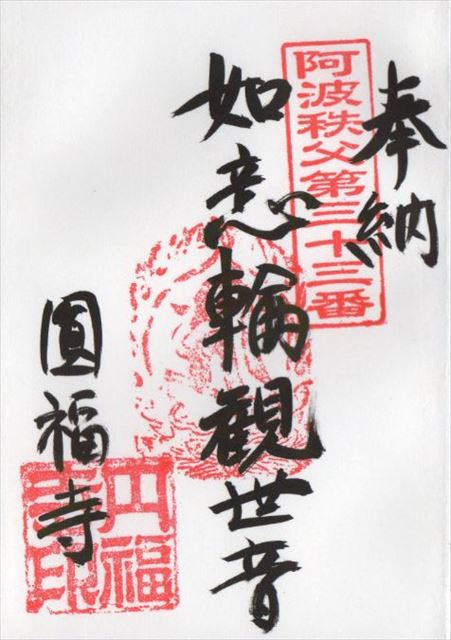 奉納
阿波秩父第三十三番
如意輪観世音
圓福寺
円福
寺印